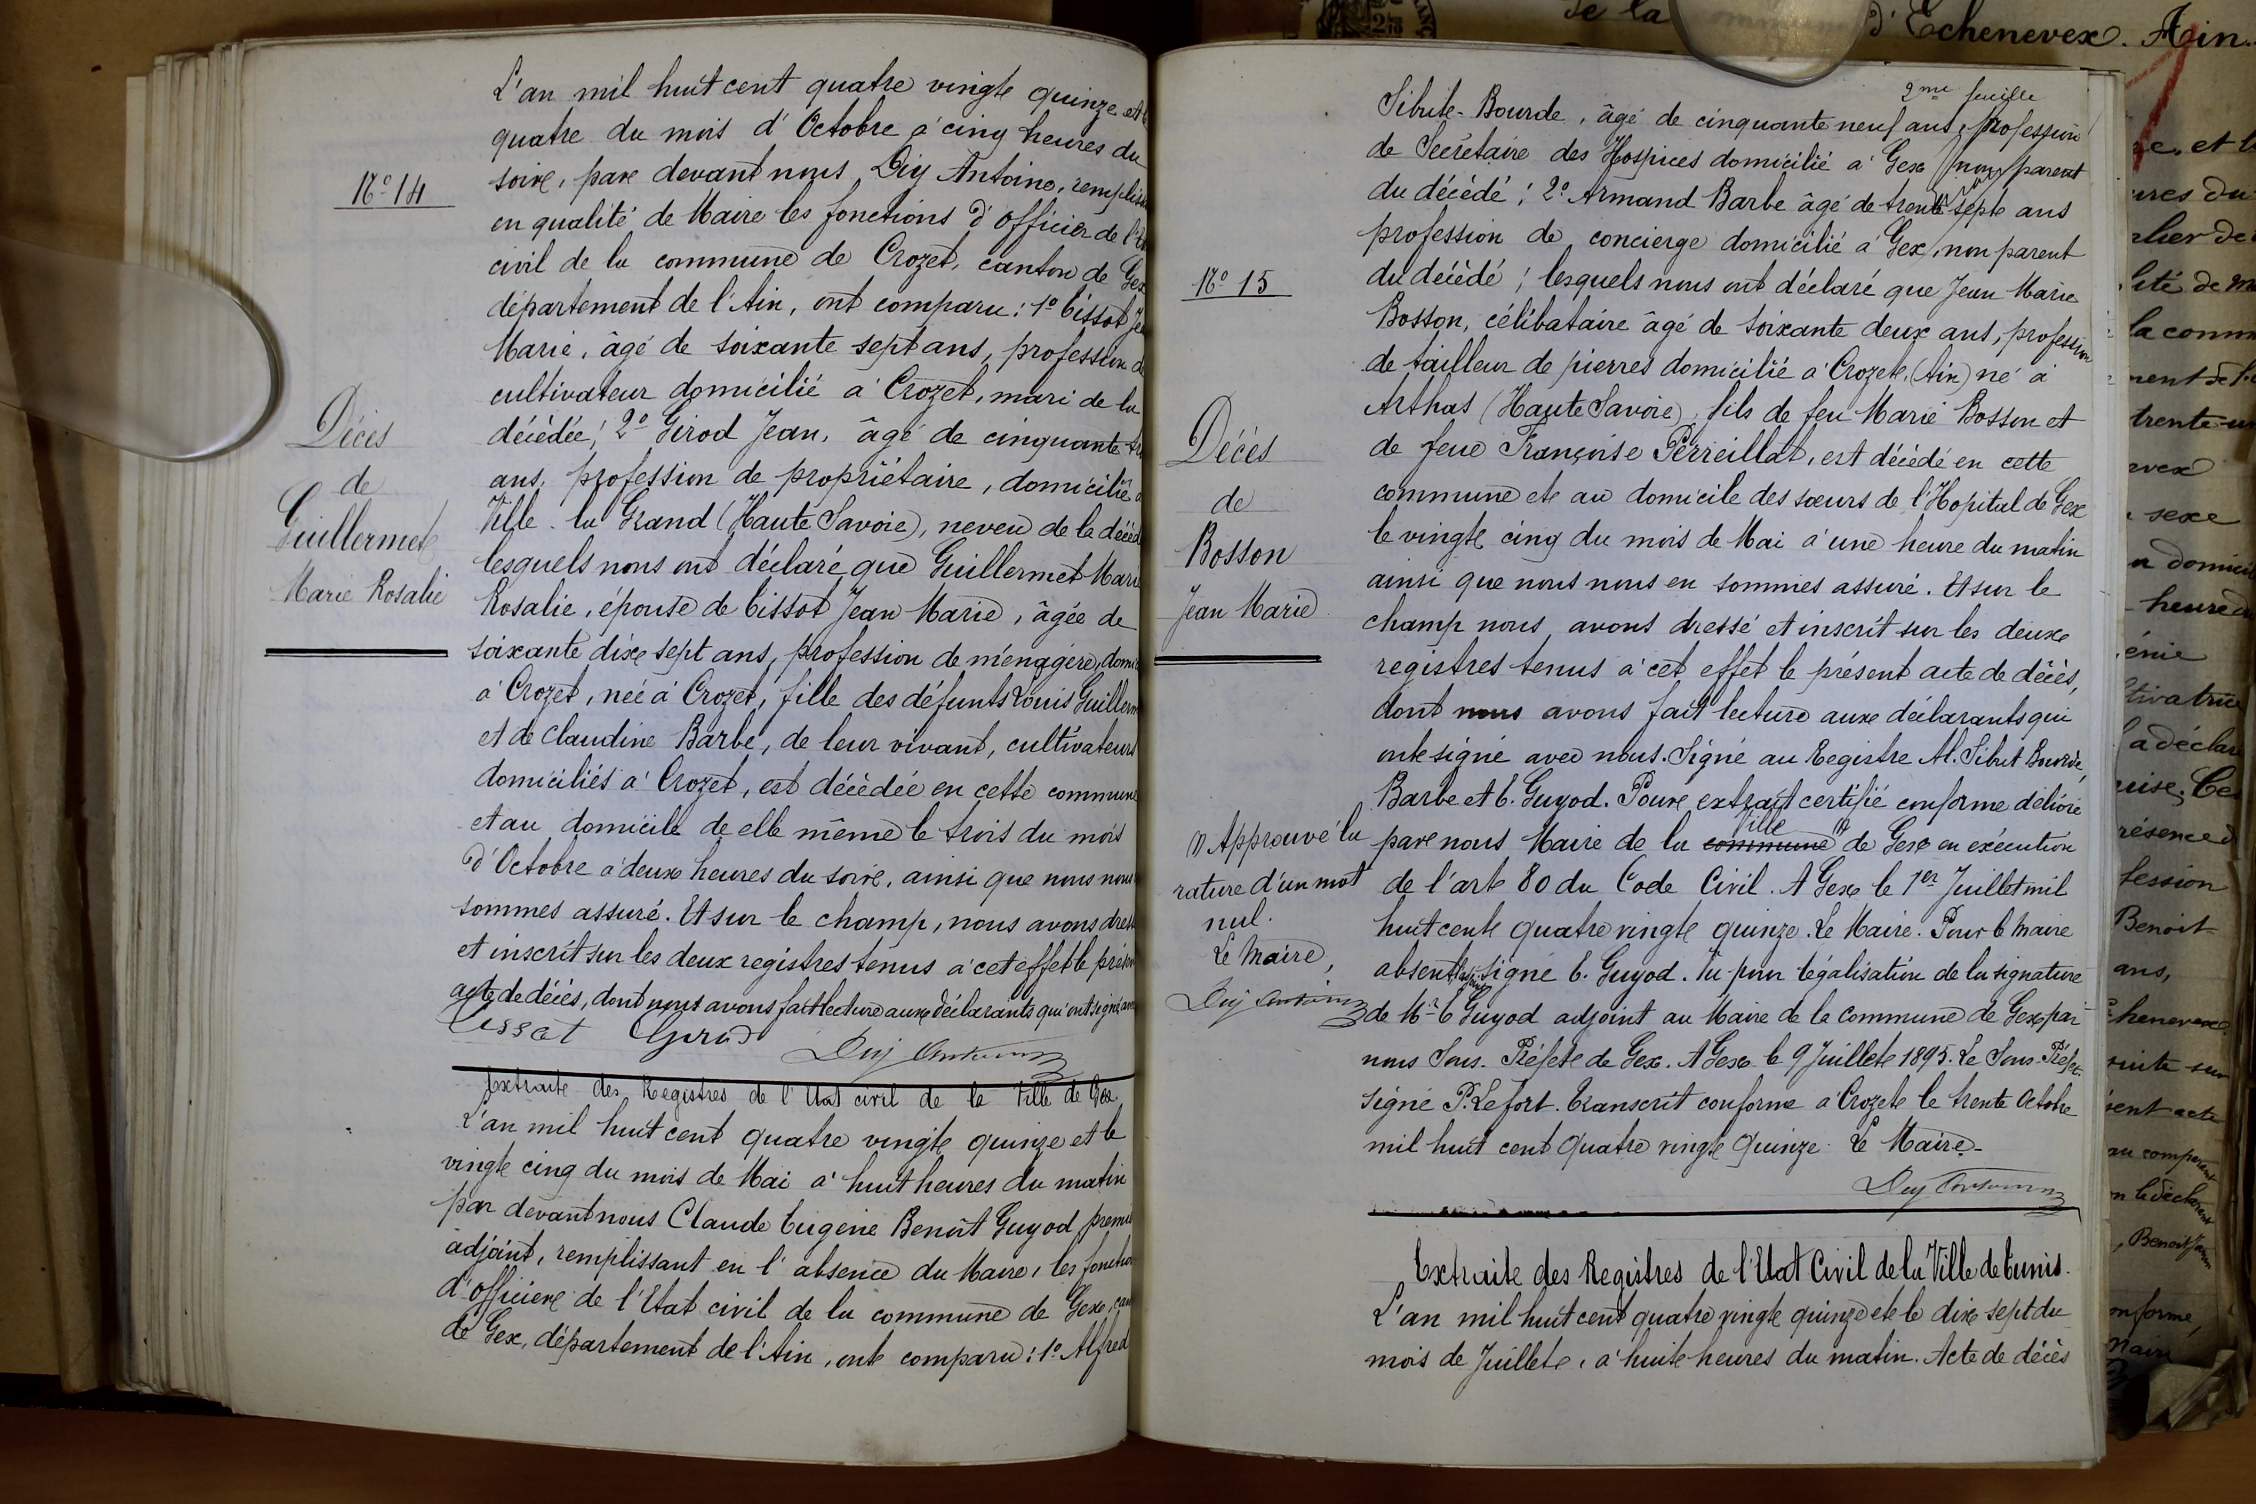 L'an mil huit cent quatre vingt quinze et
quatre du mois d'Octobre à cinq heures du
soire, pare devant nous, Duj Antoine, remplis
en qualité de Maire les fonctions d'officier de l'
civil de la commune de Crozet, canton de Gex
département de l'Ain, ont comparu: 1º Cissot
Marie, âgé de soixante sept ans, profession
cultivateur domicilié à Crozet, mari de la
décédée; 2º Girod Jean, âgé de cinquante
ans, profession de propriétaire, domicilié
Ville-la Grand (Haute Savoie), neveu de la décéd
lesquels nous ont déclaré que Guillermet Mari
Rosalie, épouse de Cissot Jean Marie, âgée de
soixante dixe sept ans, profession de ménagère, domi
à Crozet, née à Crozet, fille des défunts Louis Guillerm
et de Claudine Barbe, de leur vivant, cultivateurs
domiciliés à Crozet, est décédée en cette commune
et au domicile de elle même le trois du mois
d'Octobre à deux heures du soire, ainsi que nous nous
sommes assuré. Et sur le champ, nous avons dres
et inscrit sur les deux registres tenus à cet effet le prés
acte de décès, dont nous avons fait lecture aux déclarants qui ont signé
Cissat Girod Duj Antoine
Nº 14
Décès
de
Guillermet
Marie Rosalie
Extraite des Registres de l'Etat civil de la Ville de Gex
L'an mil huit cent quatre vingte quinze et le
vingte cinq du mois de Mai à huit heures du matin
par devant nous Claude Eugène Benoît Guyod premi
adjoint, remplissant en l'absence du Maire, les fonctio
d'officiere de l'Etat civil de la commune de Gexe, can
de Gex, département de l'Ain, onte comparu: 1º Alfred
2me feuille
Sibute-Bourde, âgé de cinquante neuf ans, profession
de Secrétaire des Hospices domicilié à Gex, non parent
du décédé; 2º Armand Barbe âgé de trente septe ans
profession de concierge domicilié à Gex, non parent
du décédé; lesquels nous ont déclaré que Jean Marie
Bosson, célibataire âgé de soixante deux ans, profession
de tailleur de pierres domicilié à Crozete, (Ain) né à
Arthas (Haute Savoie), fils de feu Marie Bosson et
de feue Françoise Perreillat, est décédé en cette
commune ete au domicile des sœurs de l'Hopital de Gex
le vingte cinq du mois de Mai à une heure du matin
ainsi que nous nous en sommes assuré. Et sur le
champ nous avons dressé et inscrit sur les deuxe
registres tenus à cet effet le présent acte de décès,
dont nous avons fait lecture auxe déclarants qui
onte signé avec nous. Signé au Registre Al. Sibut Bourde,
Barbe et E. Guyod. Poure extrait certifié conforme délivré
pare nous Maire de la commune ville (1) de Gexe en exécution
de l'arte 80 du Code Civil. A Gexe le 1er Juillet mil
huit cente quatre vingte quinze. Le Maire. Pour le Maire
absent signé E. Guyod. Vu pour légalisation de la signature
de Mr E Guyod adjoint au Maire de la commune de Gexe par
nous Sous-Préfete de Gex. A Gexe le 9 Juillete 1895. Le Sous-Préfet
signé P. Lefort. Transcrit conforme à Crozete le trente Octobre
mil huit cent quatre vingte quinze. Le Maire.
Duj Antoine
Nº 15
Décès
de
Bosson
Jean Marie
(1) Approuvé la
rature d'un mot
nul.
Le Maire,
Duj Antoine
Extraite des Registres de l'Etat Civil de la Ville de Tunis.
L'an mil huit cent quatre vingte quinze ete le dixe sept du
mois de Juillete, à huite heures du matin. Acte de décès
de la commune d'Echenevex. Ain.
et
ures du
alier de
lité de
la comm
ment de
trente-un
evex
sexe
domici
heure
énie
ltivatrice
a déclar
Ce
résence
fession
Benoit
ans,
chenevexe
suite sur
sent acte
au comparant
déclarant
Benoit
onforme,
Maire